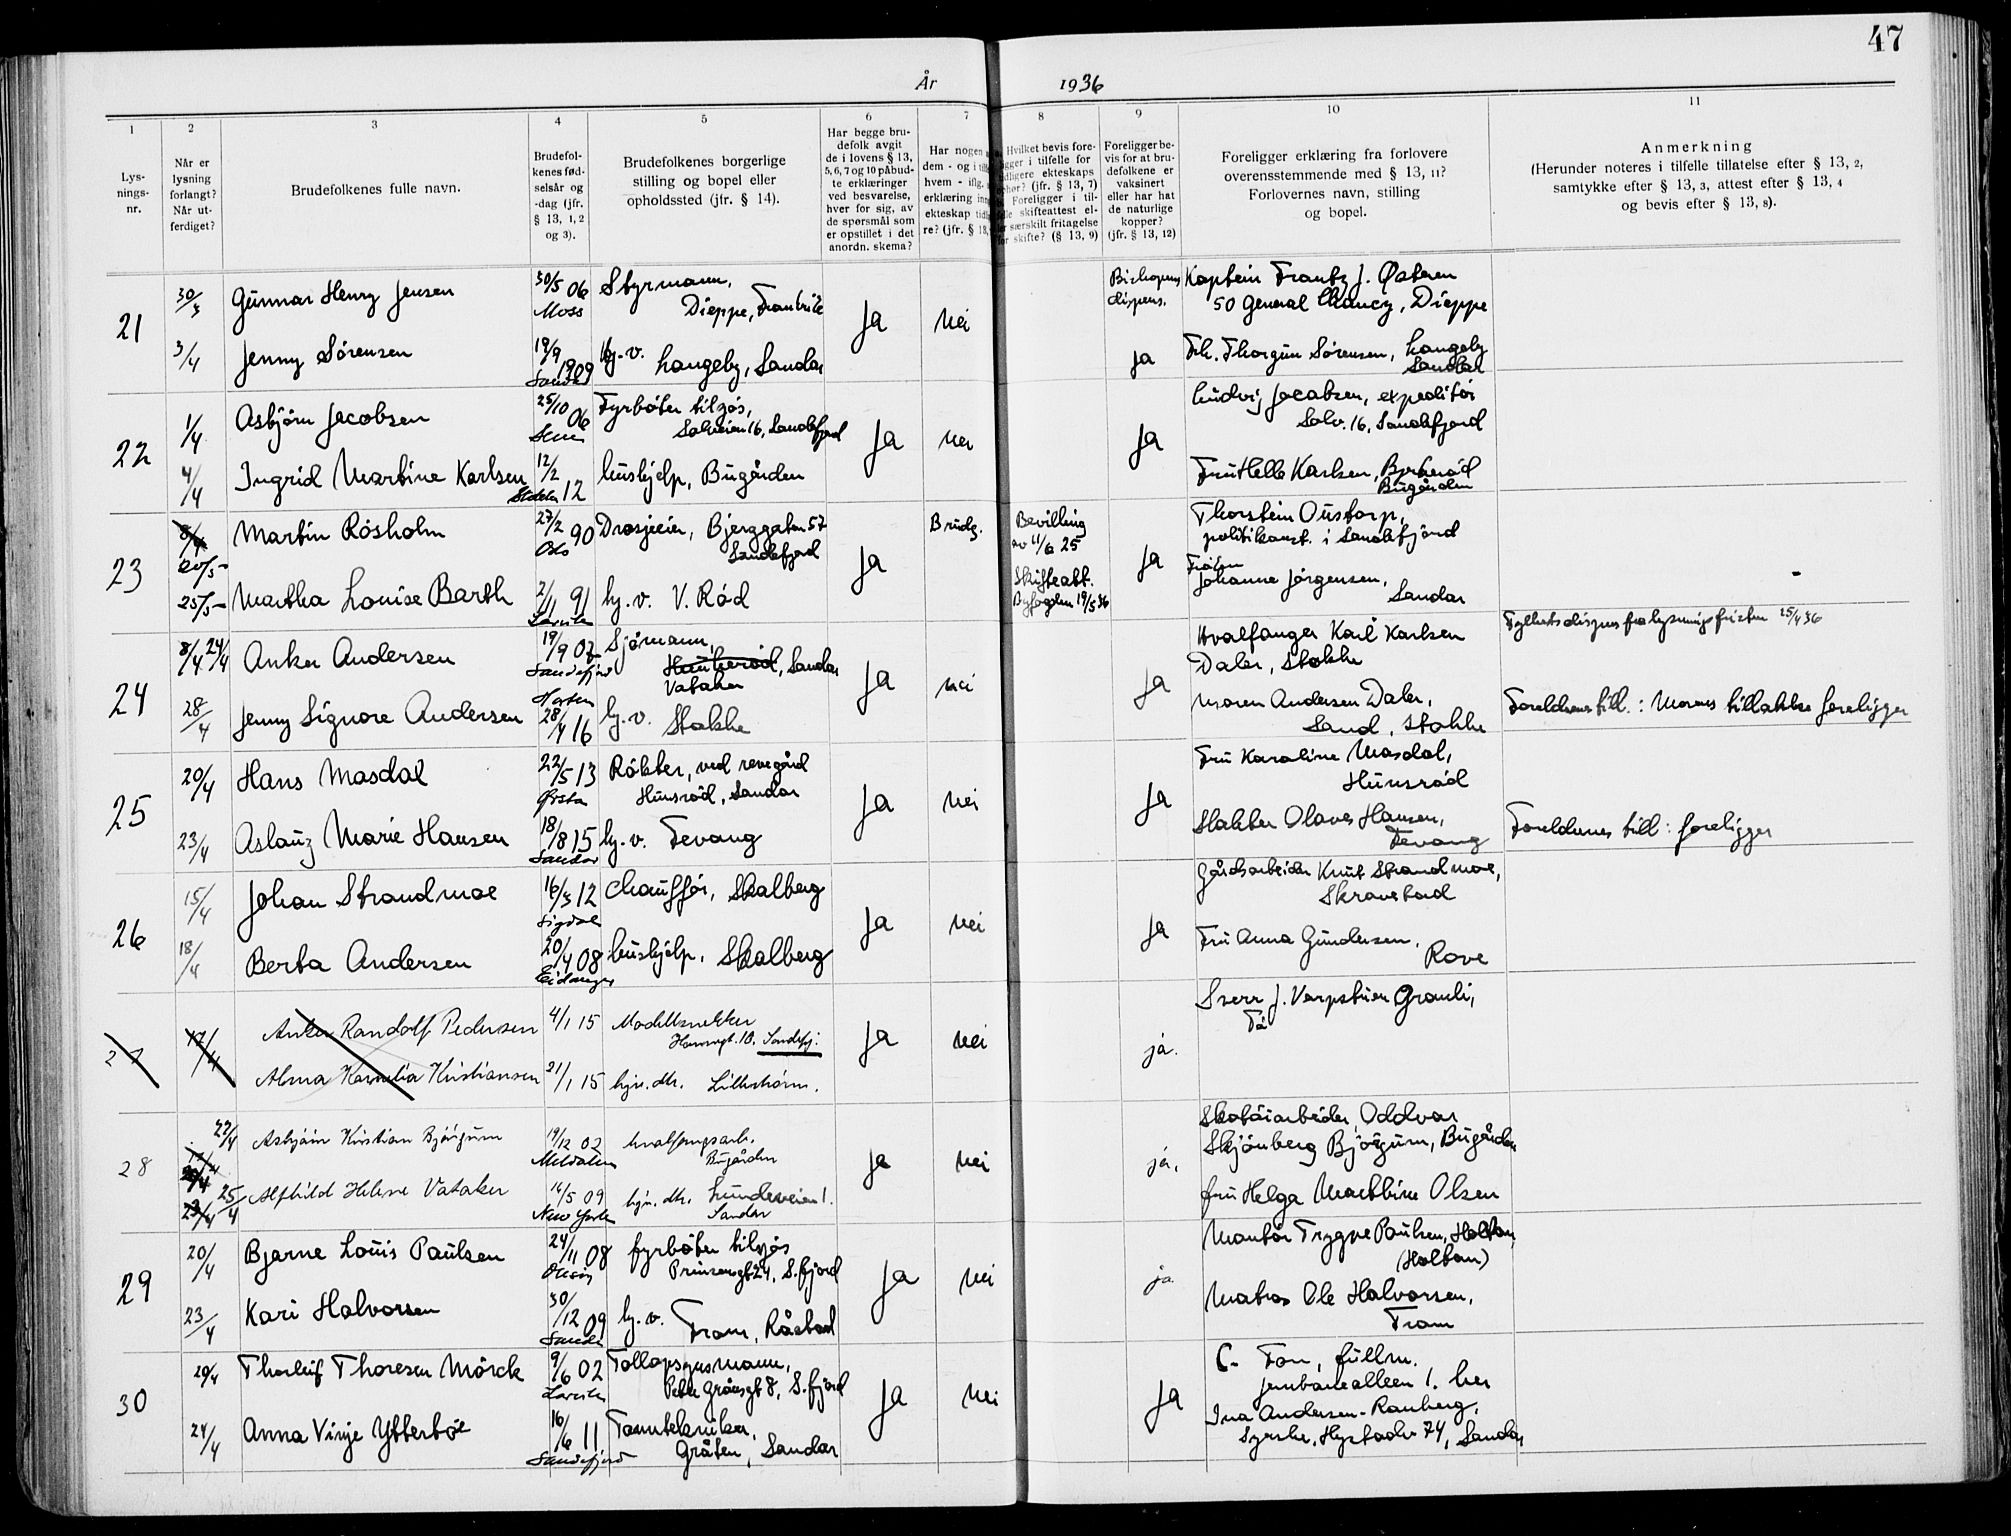 47
År 1936
1 2 3 4 5 6 7 8 9 10 11
Lys-
nings-
nr.
Når er
lysning
forlangt?
Når ut-
ferdiget?
Brudefolkenes fulle navn.
Brudefol-
kenes fød-
selsår og
-dag (jfr.
§ 13, 1, 2
og 3).
Brudefolkenes borgerlige
stilling og bopel eller
opholdssted (jfr. § 14).
Har begge bru-
defolk avgit
de i lovens § 13,
5, 6, 7 og 10 påbud-
te erklæringer
ved besvarelse,
hver for sig, av
de spørsmål som
er opstillet i det
anordn. skema?
Har nogen
dem - og i
hvem - iflg.
erklæring
ekteskap
re? (jfr. § 13,
Hvilket bevis fore-
ligger i tilfelle for
tidligere ekteskaps
ophør? (jfr. § 13, 7)
Foreligger i til-
skifteattest el-
særskilt fritagelse
for skifte? (§ 13, 9)
Foreligger be-
vis for at bru-
defolkene er
vaksinert
eller har hat
de naturlige
kopper?
(jfr. § 13, 12)
Foreligger erklæring fra forlovere
overensstemmende med § 13, 11?
Forlovernes navn, stilling
og bopel.
Anmerkning
(Herunder noteres i tilfelle tillatelse efter § 13, 2,
samtykke efter § 13, 3, attest efter § 13, 4
og bevis efter § 13, 8).
21
30/3 Gunnar Henry Jensen 30/5 06 Moss Styrmann,
Dieppe, Frankrike
Ja Nei
Bishopens
dispens.
Kaptein Frantz J. Østeren
50 General Chancy, Dieppe
3/4 Jenny Sørensen 19/9 1909 Sandar hj.v. Langeby, Sandar
Ja Frk. Thorgun Sørensen, Langeby
Sandar
22
1/4 Asbjørn Jacobsen 25/10 06 Sem Fyrbøter tilsjøs,
Solveien 16, Sandefjord
Ja Nei Ja
Ludvig Jacobsen, expeditør
Solv. 16, Sandefjord
4/4 Ingrid Martine Karlsen 12/2 12 Stokke hushjelp, Bugården
Fru Helle Karlsen,
Bugården
23
8/4 Martin Rösholm 27/2 90 Oslo Drosjeeier, Bjerggaten 57
Sandefjord
20/5
Ja Brudg.
Bevilling
av 11/6 25
Skifteatt.
Byfogden 19/5 36
Ja
Thorstein Oustorp,
politikonst. i Sandefjord
25/5 Martha Louise Barth 2/11 91 Larvik hj.v. V. Rød
Frøken
Johanne Jørgensen,
Sandar
24
8/4 24/4 Anker Andersen 19/9 07 Sandefjord Sjømann,
Haukerød, Sandar
Vataker
Ja Nei Ja
Hvalfanger Karl Karlsen
Daler, Stokke
Fylkets dispens fra lysningsfristen 25/4 36
28/4 Jenny Signore Andersen Horten 28/4 16 hj.v. Stokke
Maren Andersen Daler,
Sand, Stokke
Foreldrenes till.: Morens tillatelse foreligger
25
20/4 Hans Masdal 22/5 13 Ørsta Røkter, ved revegård
Hunsrød, Sandar
Ja Nei Ja
Fru Karoline Masdal,
Hunsrød
23/4 Aslaug Marie Hansen 18/8 15 Sandar hj.v. Fevang
Slakter Olaves Hansen,
Fevang
Foreldrenes till: foreligger
26
15/4 Johan Strandmoe 16/3 12 Sigdal Chauffør, Skalberg
Ja Nei Ja
Gårdsarbeider Knut Strandmoe,
Skravestad
18/4 Berta Andersen 20/4 08 Eidanger hushjelp, Skalberg
Fru Anna Gundersen,
Rove
27
17/4 Anker Randolf Pedersen 4/1 15 Modellsnekker
Havnegt. 10, Sandefj.
Ja Nei ja.
Sverr J. Verpstuen Granli,
Alma Kornelia Kristiansen 21/1 15 hjv. dtr. Lillestrøm.
28
22/4 Asbjørn Kristian Bjørgum 19/12 02 Meldalen hvalfangstarb.
Bugården
Ja Nei ja,
Skotøiarbeider, Oddvar
Skjønberg Bjørgum, Bugården
25/4 Alfhild Helene Vataker 16/5 09 New York hjv. dtr. Lundeveien 1.
Sandar
fru Helga Marthine Olsen
29
20/4 Bjarne Louis Paulsen 24/11 08 fyrbøter tilsjøs
Prinsensgt 24, S.fjord
Ja Nei ja
Montør Trygve Paulsen, Holtan,
(Holtan)
23/4 Kari Halvorsen 30/12 09 Sandar hj.v.
Fram, Råstad
Matros Ole Halvorsen,
Fram
30
20/4 Thorleif Thoresen Mørck 9/6 02 Larvik Tollopsynsmann,
Peter Grønsgt 8, S.fjord
Ja Nei Ja
C. Fon, fullm.
Jernbanealleen 1. her
24/4 Anna Vinje Ytterbøe 16/6 11 Sandefjord Tanntekniker,
Gråten, Sandar
Ina Andersen-Ranberg,
Syerske, Hystadv 74, Sandar